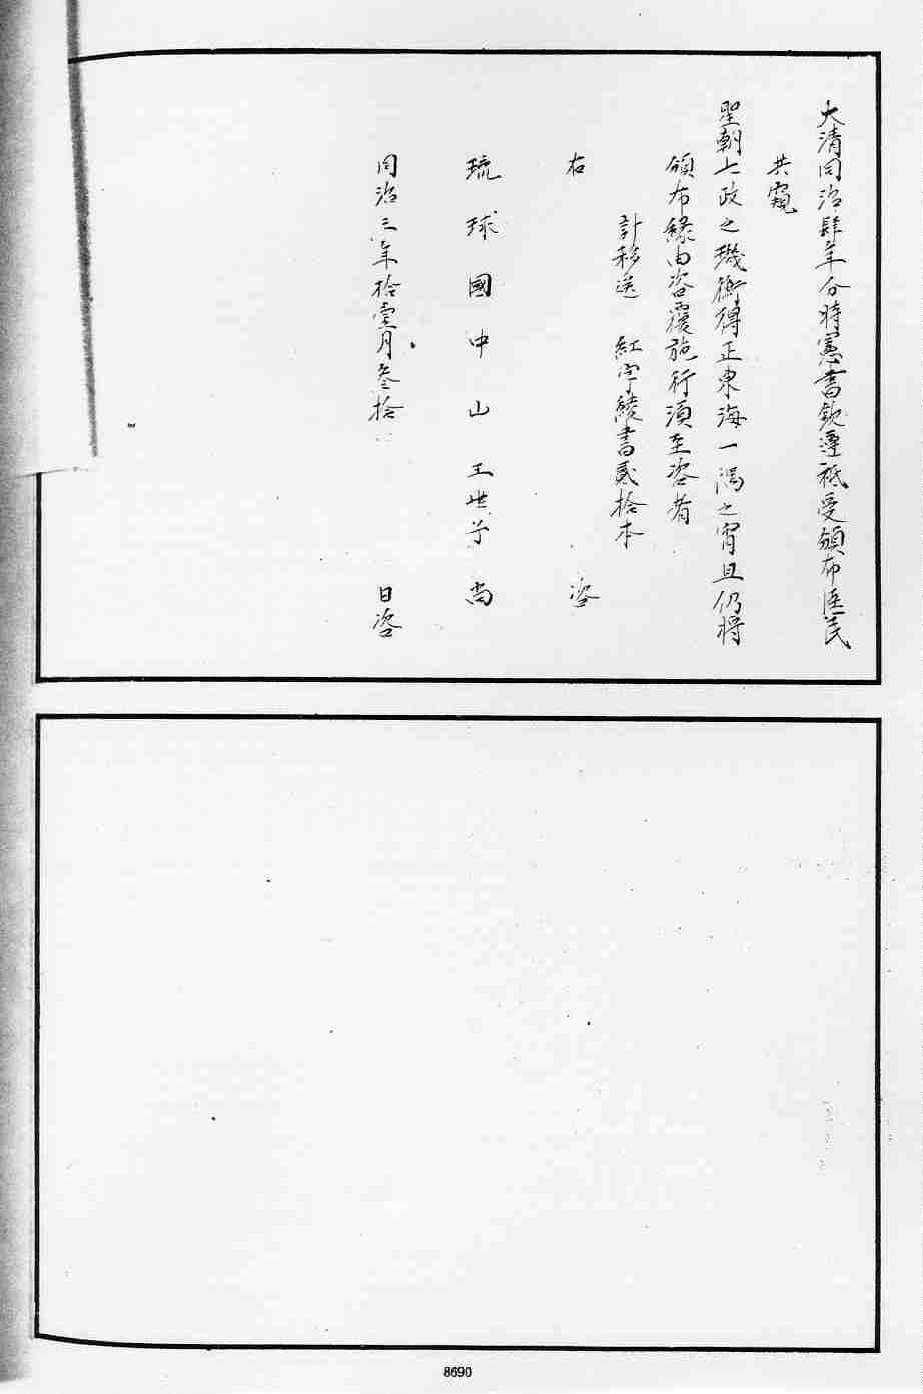 大清同治肆年分時憲書欽遵祗受頒布臣民
共窺
聖朝七政之璣衡得正東海一隅之宵旦仍將
頒布緣由咨覆施行須至咨者
計移送 紅字綾書貳拾本
右 咨
琉球國中山王世子尚
同治三年拾壹月叁拾 日咨
8690